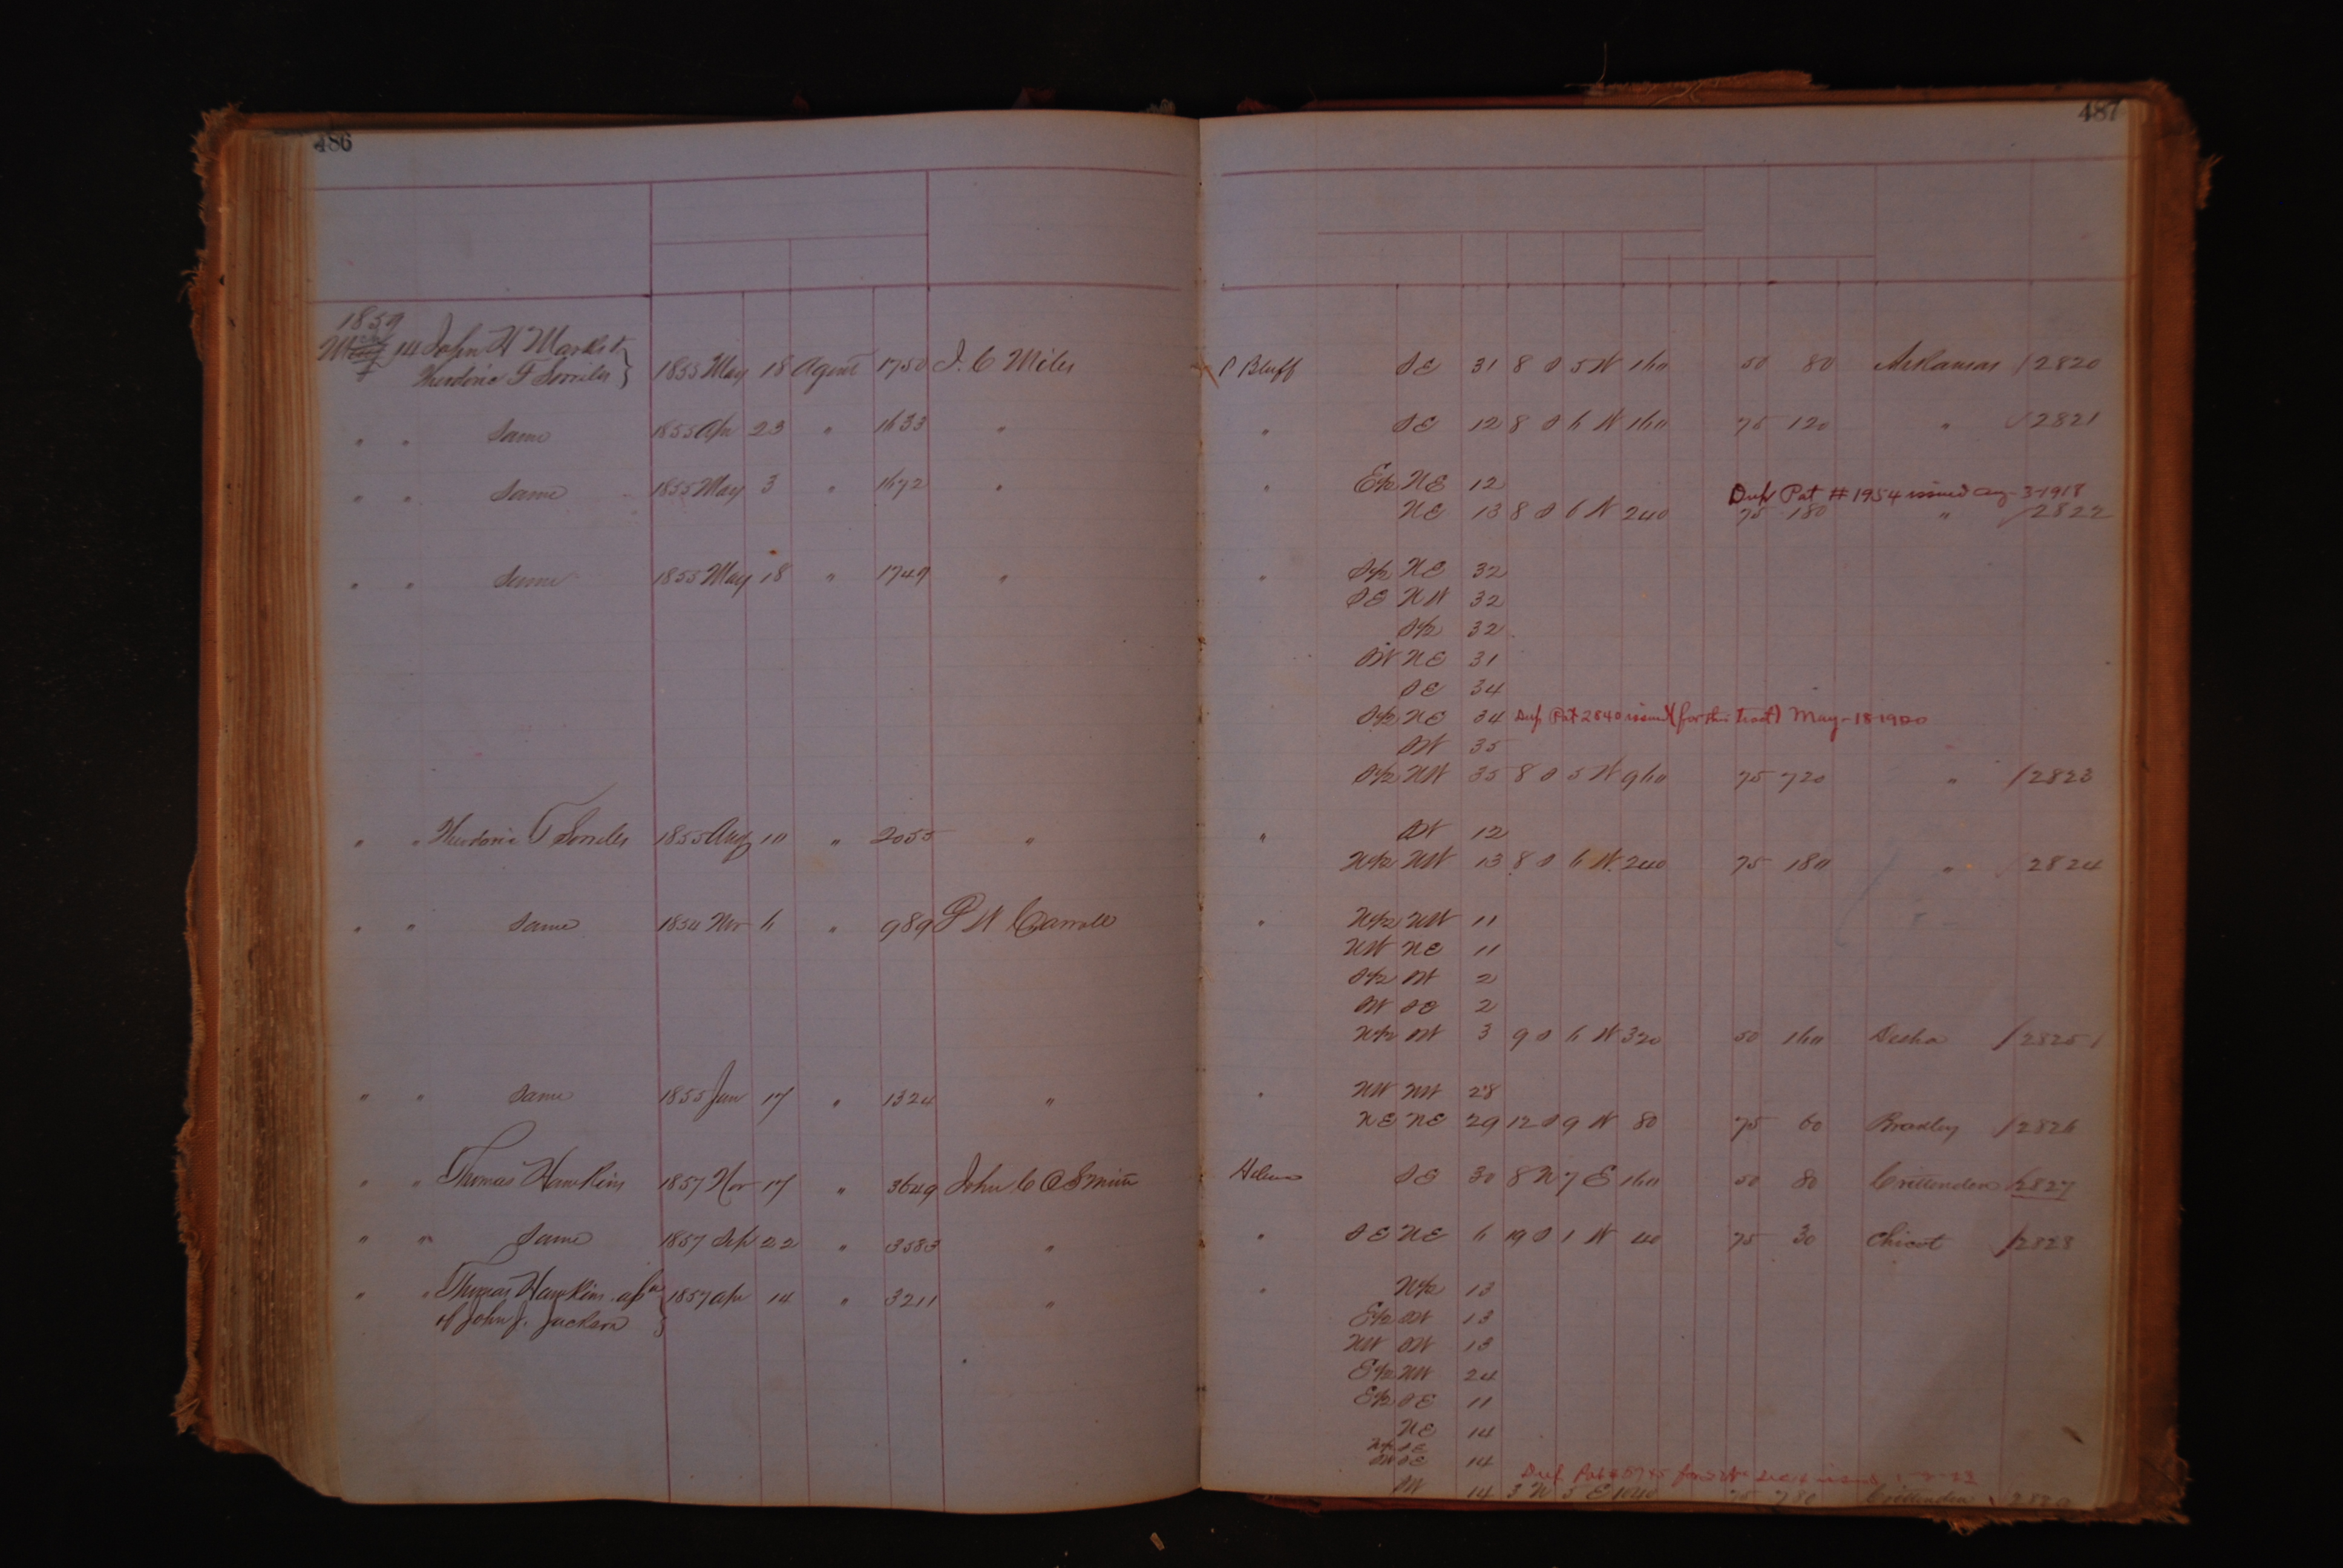 486
487
1859
14 John W Marks &
Theodoric F Sorrells } 1855 May 18 Agent 1750 J. C Miles P Bluff SE 31 8 S 5 W 160 50 80 Arkansas / 2820
" " Same 1855 Apr 23 " 1633 " " SE 12 8 S 6 W 160 75 120 " / 2821
" " Same 1855 May 3 " 1672 " " E½ NE 12
Dup Pat # 1954 issued Aug-3-1918
NE 13 8 S 6 W 240 75 180 " / 2822
" " Same 1855 May 18 " 1749 " " S½ NE 32
SE NW 32
S½ 32
SW NE 31
SE 34
S½ NE 34 Dup Pat 2840 issued (for this tract) May-18-1920
SW 35
S½ NW 35 8 S 5 W 960 75 720 " / 2823
" " Theodoric F Sorrells 1855 Aug 10 " 2055 " " SW 12
N½ NW 13 8 S 6 W 240 75 180 " / 2824
" " Same 1854 Nov 6 " 989 P W Carroll " N½ NW 11
NW NE 11
S½ SW 2
SW SE 2
N½ SW 3 9 S 6 W 320 50 160 Desha / 2825
" " Same 1855 Jan 17 " 1324 " " NW NW 28
NE NE 29 12 S 9 W 80 75 60 Bradley / 2826
" " Thomas Hawkins 1857 Nov 17 " 3649 John C O Smith Helena SE 30 8 N 7 E 160 50 80 Crittenden / 2827
" " Same 1857 Sep 22 " 3583 " " SE NE 6 19 S 1 W 40 75 30 Chicot / 2828
" " Thomas Hawkins assee
of John J. Jackson } 1857 Apr 14 " 3211 " " N½ 13
E½ SW 13
NW SW 13
E½ NW 24
E½ SE 11
NE 14
N½ SE
SW SE 14
Dup Pat issued
SW 14 3 N 5 E 1040 75 780 Crittenden 2829